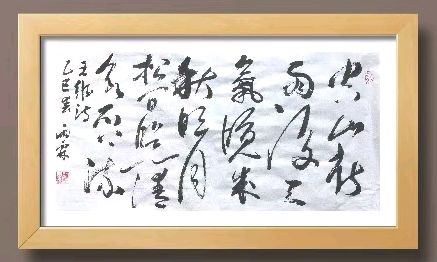 空山新
雨後天
氣晚来
秋明月
松间照清
泉石上流
王维诗
乙巳